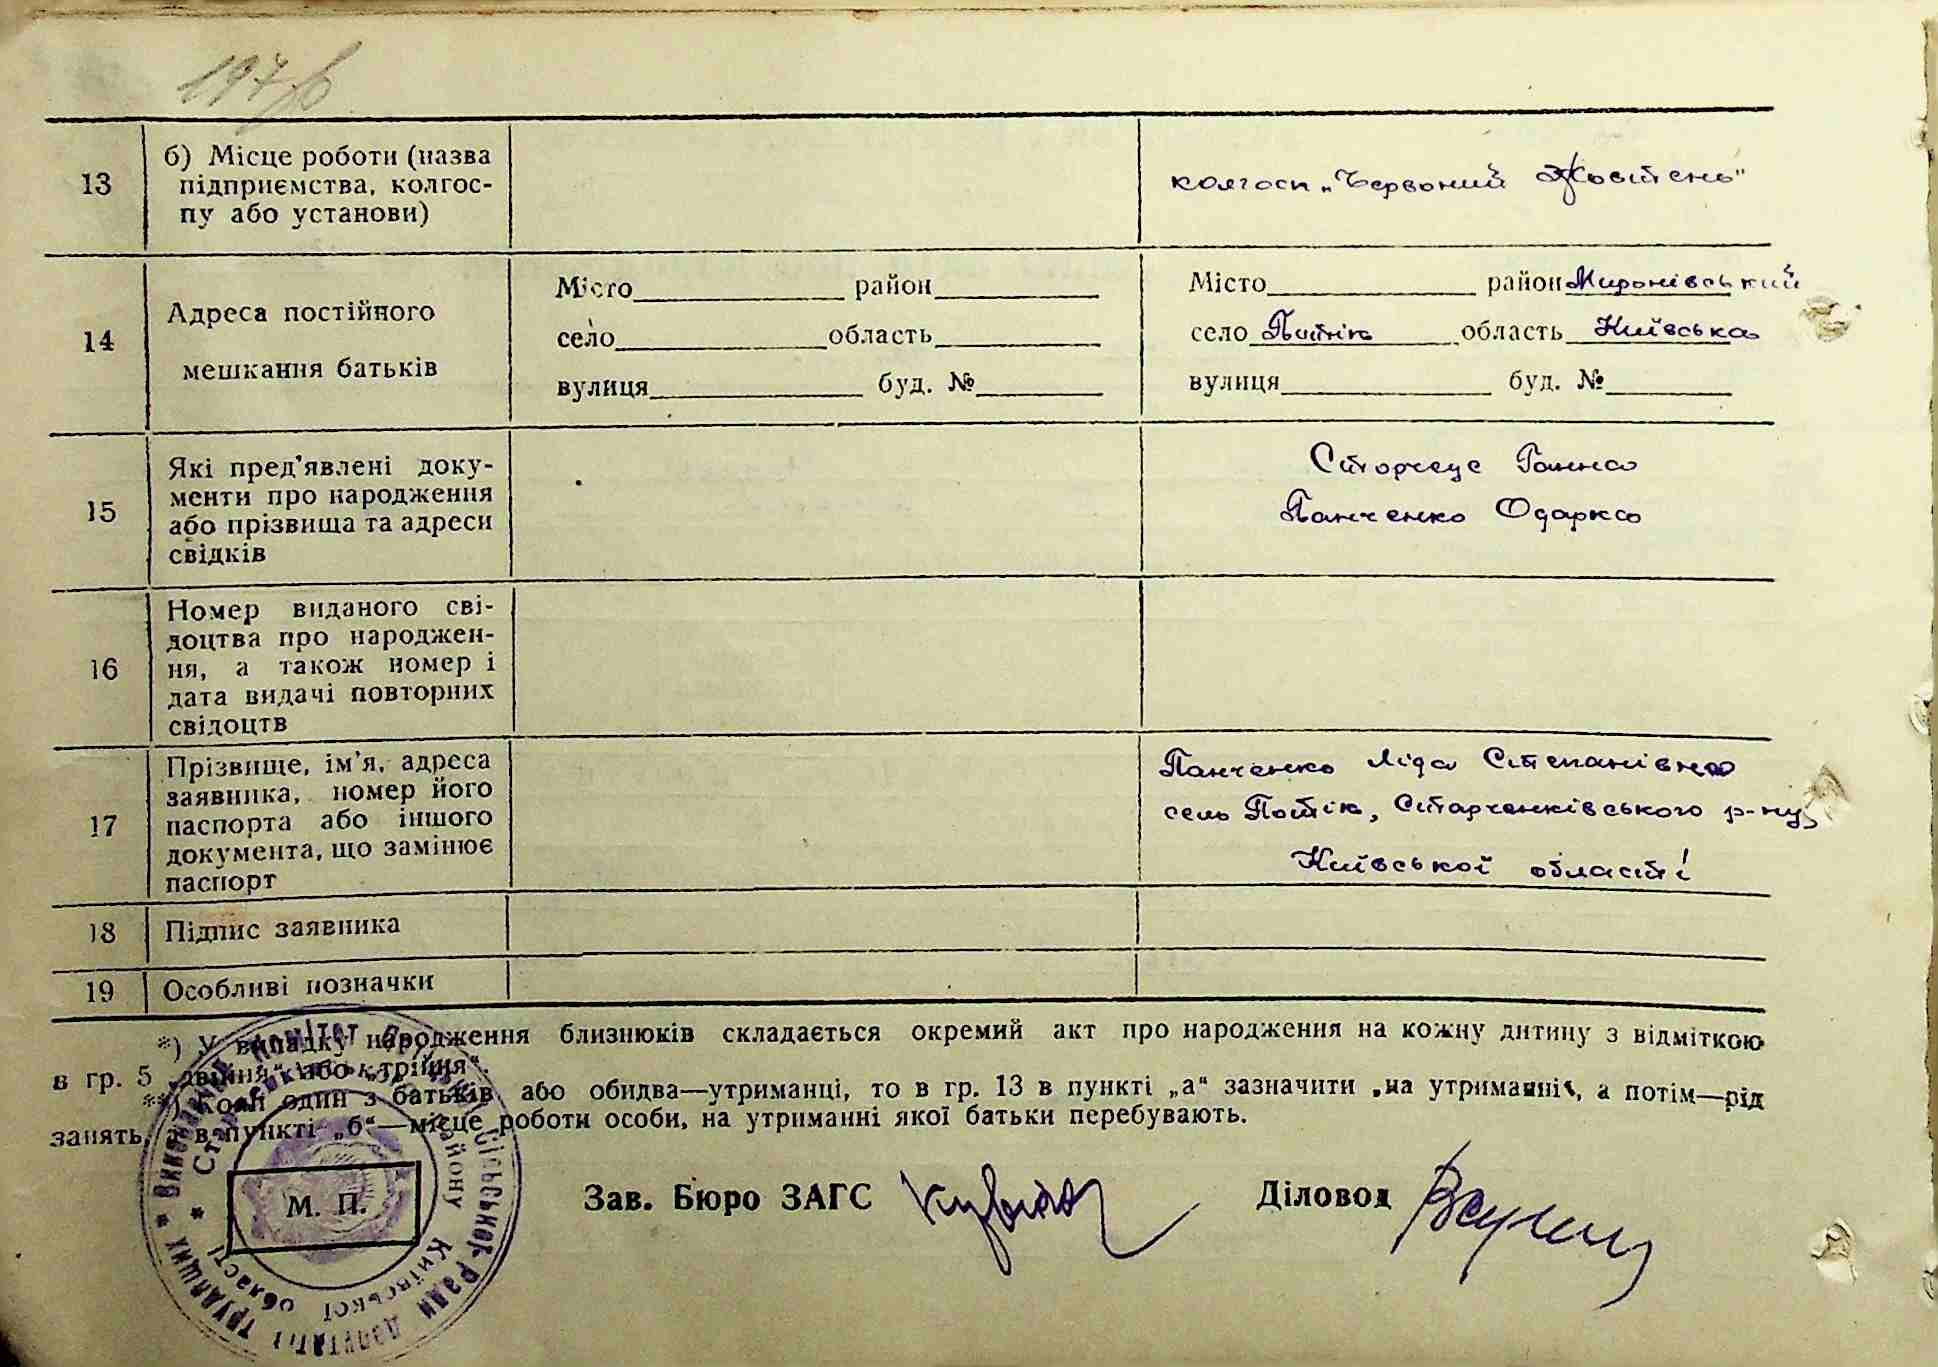 13
б) Місце роботи (назва
підприємства, колгос-
пу або установи)
колгосп „Червоний Жовтень"
14
Адреса постійного
мешкання батьків
Місто район
село область
вулиця буд. №
Місто район Миронівський
село Потік область Київська
вулиця буд. №
15
Які пред'явлені доку-
менти про народження
або прізвища та адреси
свідків
Ганна
Панченко Одарка
16
Номер виданого сві-
доцтва про народжен-
ня, а також номер і
дата видачі повторних
свідоцтв
17
Прізвище, ім'я, адреса
заявника, номер його
паспорта або іншого
документа, що замінює
паспорт
Панченко Ліда Степанівна
село Потік, Старченківського р-ну,
Київської області
18
Підпис заявника
19
Особливі позначки
*) У випадку народження близнюків складається окремий акт про народження на кожну дитину з відміткою
в гр. 5 „двійня" або „трійня".
**) Коли один з батьків або обидва—утриманці, то в гр. 13 в пункті „а" зазначити „на утриманні", а потім—рід
занять, а в пункті „б"—місце роботи особи, на утриманні якої батьки перебувають.
М. П.
Зав. Бюро ЗАГС
Діловод
Виконавчий комітет сільської Ради депутатів трудящих
району Київської області